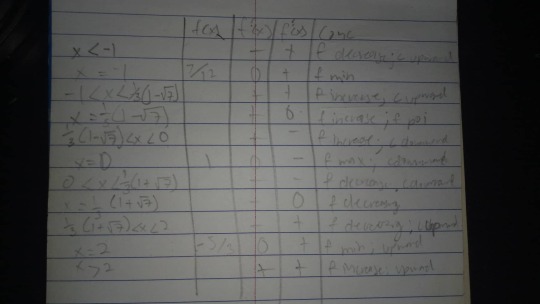 f(x) f'(x) f''(x) Conc
x < -1 - + f decrease; c upward
x = -1 7/12 0 + f min
-1 < x < 1/3(1-√7) + + f increase, c upward
x = 1/3(1-√7) + 0 f increase; f poi
1/3(1-√7) < x < 0 + - f increase; c downward
x = 0 1 0 - f max; c downward
0 < x < 1/3(1+√7) - - f decrease, c downward
x = 1/3(1+√7) - 0 f decreasing
1/3(1+√7) < x < 2 - + f decreasing; c upward
x = 2 0 + f min; upward
x > 2 + + f increase; upward